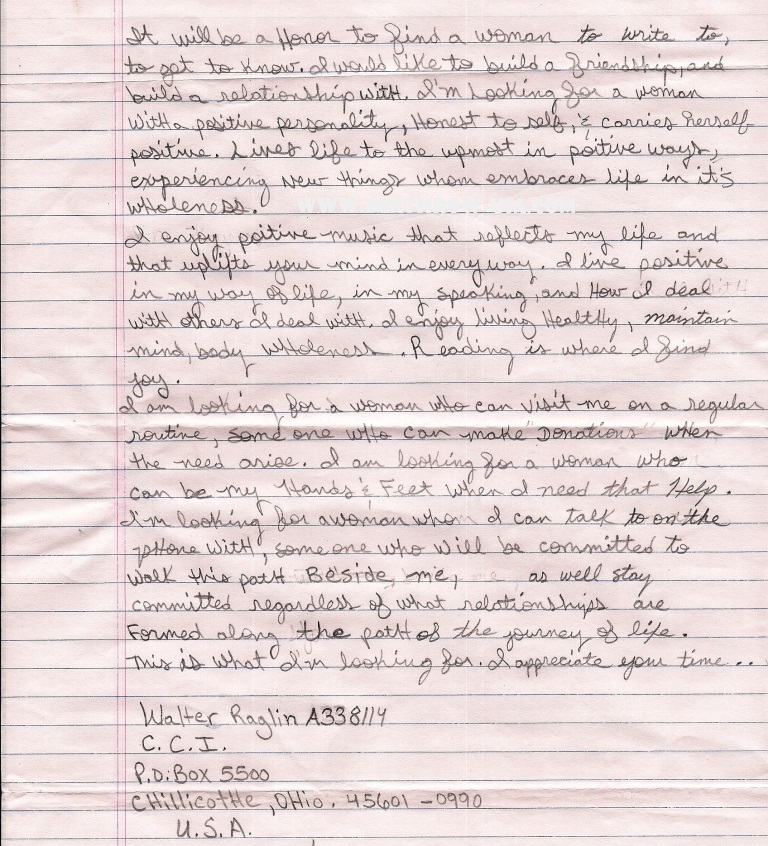 It will be a Honor to find a woman to write to,
to get to know. I would like to build a friendship, and
build a relationship with. I'm Looking for a woman
with a positive personality, Honest to self, & carries herself
positive. Lives life to the upmost in poitive ways,
experiencing new things whom embraces life in it's
wholeness.
I enjoy poitive music that reflects my life and
that uplifts your mind in every way. I live positive
in my way of life, in my speaking, and How I deal
with others I deal with. I enjoy living Healthy, maintain
mind, body wholeness. Reading is where I find
joy.
I am looking for a woman who can visit me on a regular
routine, some one who can make "Donations" when
the need arise. I am looking for a woman who
can be my Hands & Feet when I need that Help.
I'm looking for a woman whom I can talk to on the
phone with, some one who will be committed to
walk this path Beside me, as well stay
committed regardless of what relationships are
Formed along the path of the journey of life.
This is what I'm looking for. I appreciate your time...
Walter Raglin A338114
C.C.I.
P.O. Box 5500
CHillicotHe, OHio. 45601-0990
U.S.A.